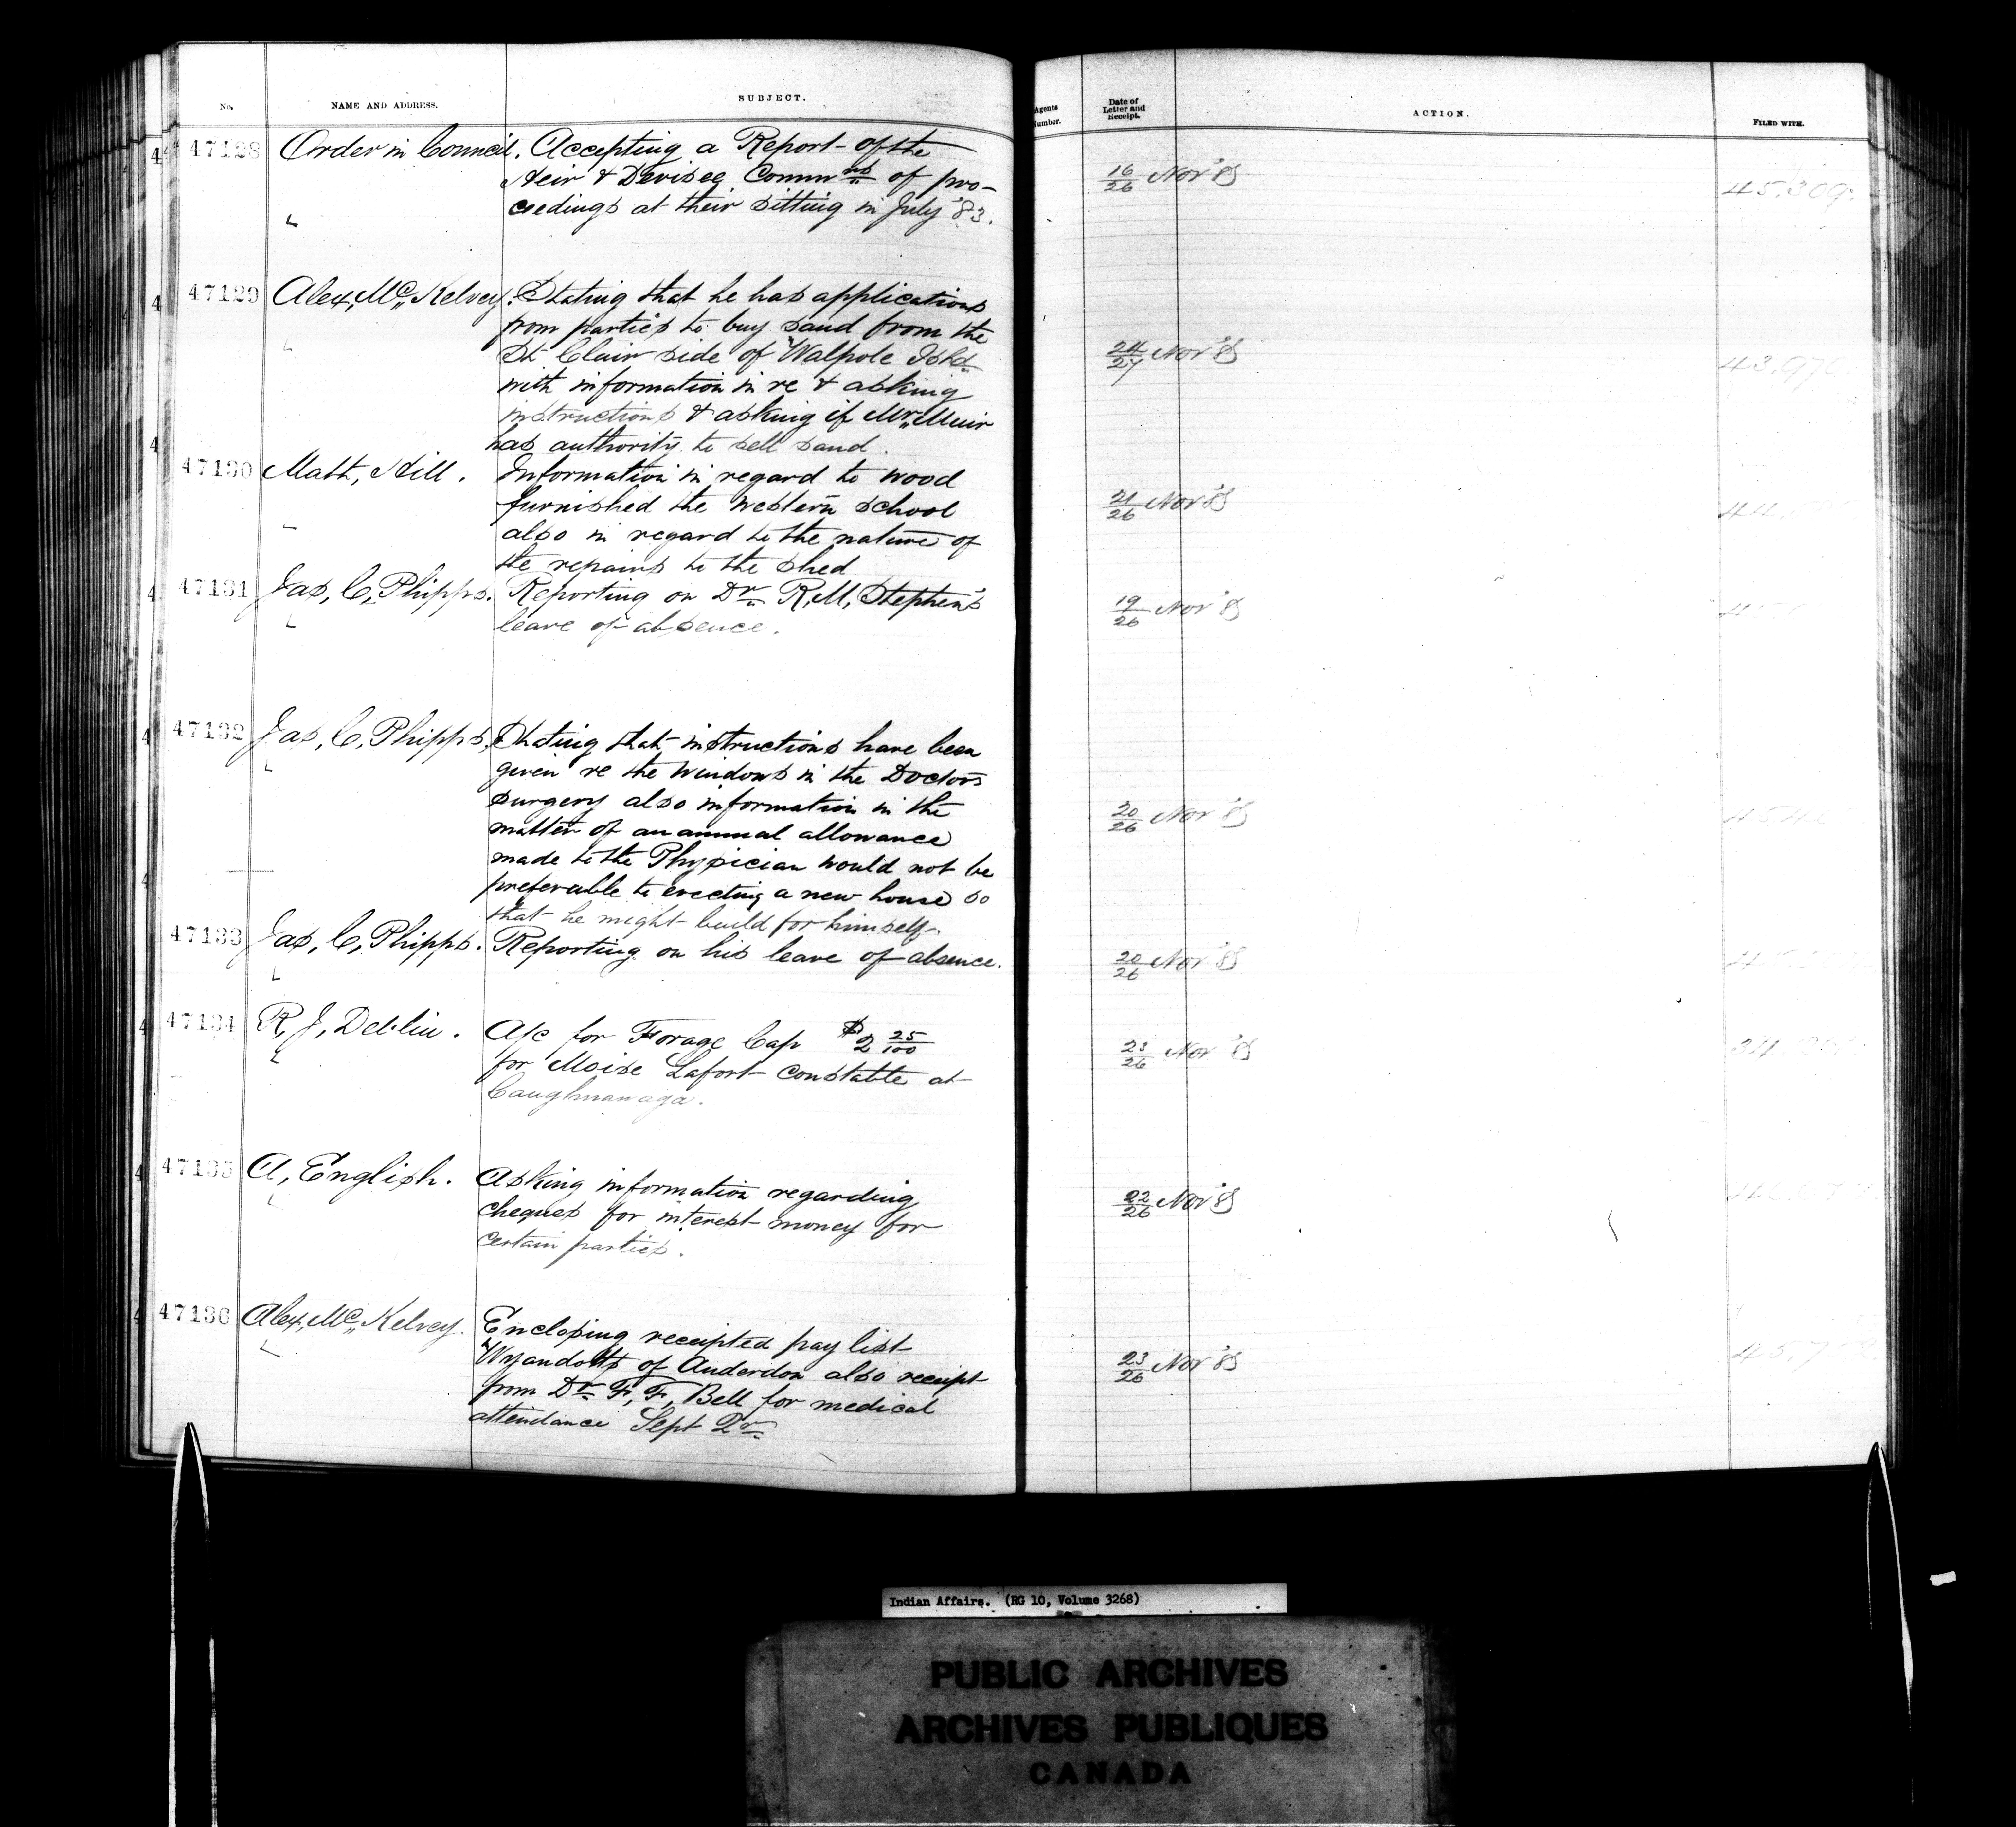 No. NAME AND ADDRESS. SUBJECT. Agents Number. Date of Letter and Receipt. ACTION. FILED WITH.
47128 Order in Council. Accepting a Report of the
Heir & Devisee Commns of pro-
ceedings at their sitting in July '83.
16/26 Nov '85 45,309.
47129 Alex, Mc Kelvey. Stating that he has applications
from parties to buy sand from the
St Clair side of Walpole Isld
with information in re & asking
instructions & asking if Mr Muir
has authority to sell sand.
24/27 Nov '85 43,97
47130 Matt, Hill. Information in regard to wood
furnished the western school
also in regard to the nature of
the repairs to the shed
21/26 Nov '85 44
47131 Jas, C, Phipps. Reporting on Dr R, M, Stephen's
leave of absence.
19/26 Nov '85
47132 Jas, C, Phipps. Stating that instructions have been
given re the windows in the Doctors
surgery also information in the
matter of an annual allowance
made to the Physician would not be
preferable to erecting a new house so
that he might build for himself.
20/26 Nov '85
47133 Jas, C, Phipps. Reporting on his leave of absence.
20/26 Nov '85
47134 R, J, Devlin. A/c for Forage Cap $2 25/100
for Moise Lafort constable at
Caughnawaga.
23/26 Nov '85
47135 A, English. Asking information regarding
cheques for interest money for
certain parties.
22/26 Nov '85
47136 Alex, Mc Kelvey. Enclosing receipted pay list
Wyandotts of Anderdon also receipt
from Dr F, F, Bell for medical
attendance Sept Qr
23/26 Nov '85
Indian Affairs. (RG 10, Volume 3268)
PUBLIC ARCHIVES
ARCHIVES PUBLIQUES
CANADA